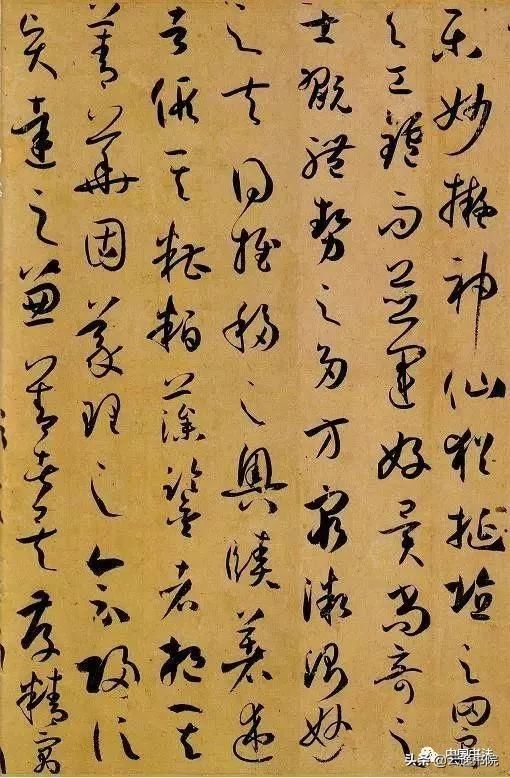 樂妙擬神仙猶埏埴之罔窮
與工鑪而並運好異尚奇之
士翫體勢之多方窮微測妙
之夫得推移之奧賾著述
者假其糟粕藻鑒者挹其
菁華固義理之會歸信
賢達之兼善者矣存精寓
中国书法
头条